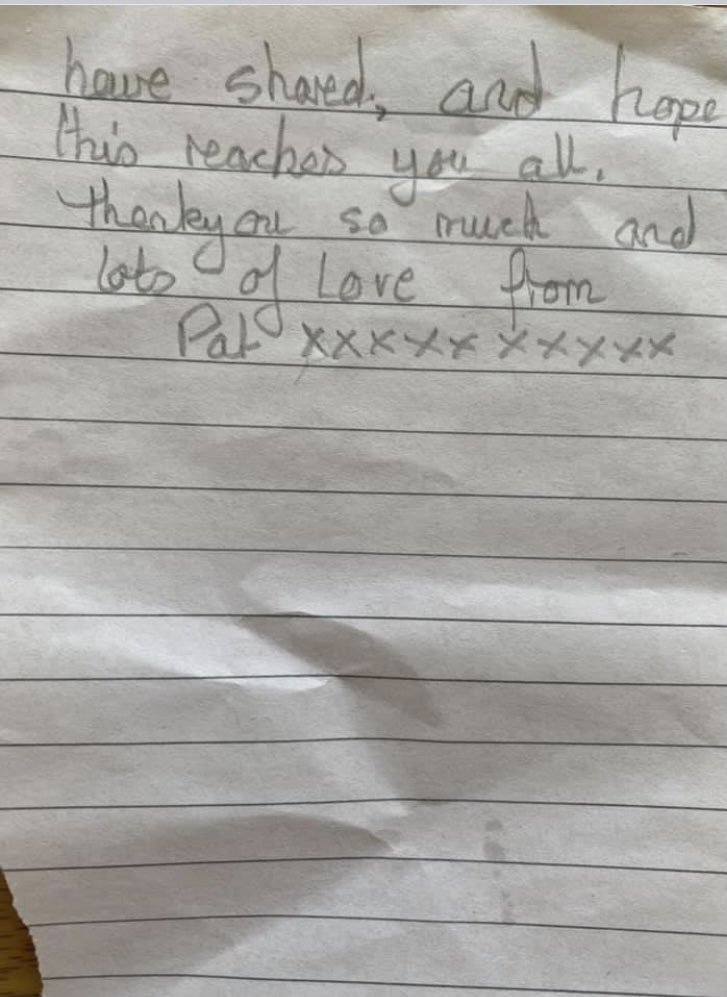 have shared, and hope
this reaches you all.
thankyou so much and
lots of Love from
Pat xxxxx xxxxx